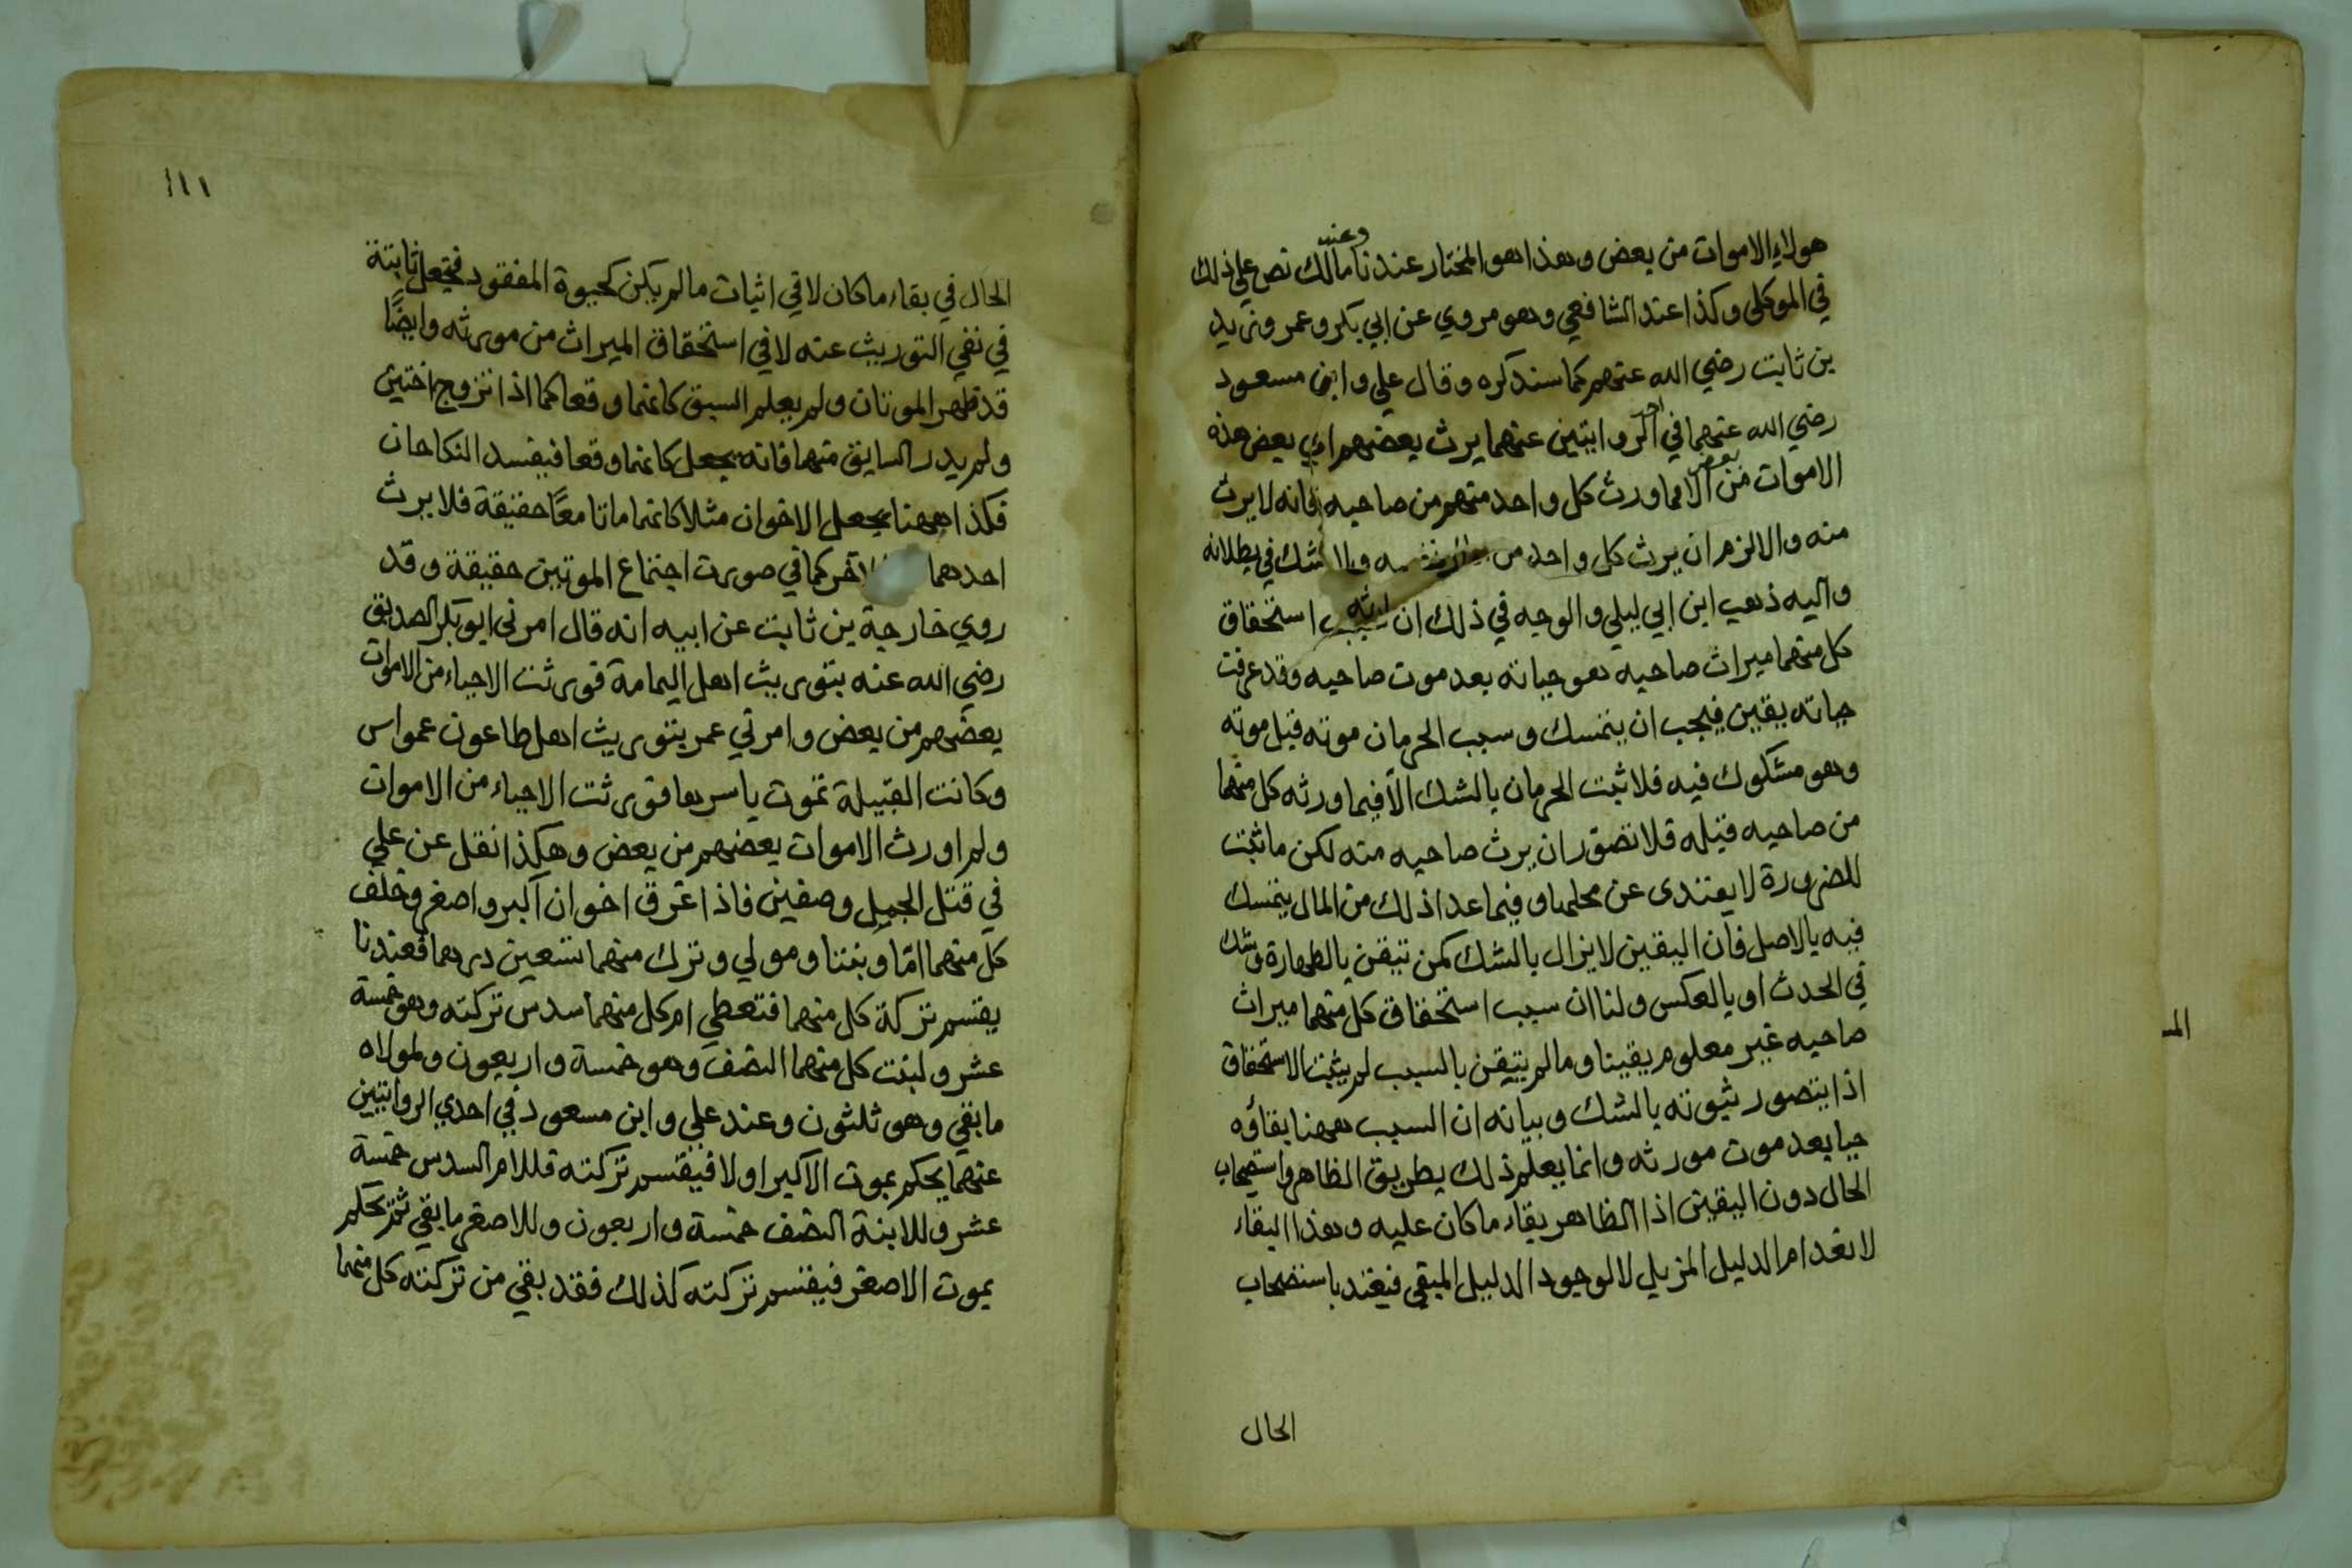 هولاء الاموات من بعض وهذا هو المختار عندنا وعند مالك نص علي ذلك
في الموكلى وكذا عند الشافعي وهو مروي عن ابي بكر وعمر وزيد
بن ثابت رضي الله عنهم كما سنذكره وقال علي وابن مسعود
رضي الله عنهما في احد الروايتين عنهما يرث بعضهم اي بعض هذه
الاموات من بعض الا مما ورث كل واحد منهم من صاحبه فانه لا يرث
منه والا لزم ان يرث كل واحد من ولا شك في بطلانه
واليه ذهب ابن ابي ليلي والوجه في ذلك ان سبب استحقاق
كل منهما ميراث صاحبه هو حياته بعد موت صاحبه وقد عرفت
حياته يقين فيجب ان يتمسك وسبب الحرمان موته قبل موته
وهو مشكوك فيه فلا ثبت الحرمان بالشك الا فيما ورثه كل منهما
من صاحبه قبله فلا تصور ان يرث صاحبه منه لكن ما ثبت
للضرورة لا يعتدى عن محلها وفيما عدا ذلك من المال يتمسك
فيه بالاصل فان اليقين لا يزال بالشك كمن تيقن بالطهارة وشك
في الحدث او بالعكس ولنا ان سبب استحقاق كل منهما ميراث
صاحبه غير معلوم يقينا وما لم يتيقن بالسبب لم يثبت الاستحقاق
اذا يتصور ثبوته بالشك وبيانه ان السبب ههنا بقاؤه
حيا بعد موت مورثه وانما يعلم ذلك بطريق الظاهر واستصحاب
الحال دون اليقين اذا الظاهر بقاء ما كان عليه وهذا البقاء
لانعدام الدليل المزيل لا لوجود الدليل المبقي فيعتد باستصحاب
الحال
المـ
١١١
الحال في بقاء ما كان لا في اثبات ما لم يكن كحيوة المفقود فيجعل ثابتة
في نفي التوريث عنه لا في استحقاق الميراث من مورثه وايضًا
قد ظهر الموتان ولم يعلم السبق كانهما وقعا كما اذا تزوج اختين
ولم يدر السابق منهما فانه يجعل كانهما وقعا فيفسد النكاحان
فكذا ههنا يجعل الاخوان مثلا كانهما ماتا معًا حقيقة فلا يرث
احدهما الآخر كما في صورت اجتماع الموتين حقيقة وقد
روي خارجة بن ثابت عن ابيه انه قال امرني ابو بكر الصديق
رضي الله عنه بتوريث اهل اليمامة فورثت الاحياء من الاموات
بعضهم من بعض وامرني عمر بتوريث اهل طاعون عمواس
وكانت القبيلة تموت باسرها فورثت الاحياء من الاموات
ولم اورث الاموات بعضهم من بعض وهكذا نقل عن علي
في قتل الجمل وصفين فاذا غرق اخوان اكبر واصغر وخلف
كل منهما امّا وبنتا ومولي وترك منهما تسعين درهما فعندنا
يقتسم تركة كل منهما فتعطي ام كل منهما سدس تركته وهو خمسة
عشر ولبنت كل منهما النصف وهو خمسة واربعون ولمولاه
ما بقي وهو ثلثون وعند علي وابن مسعود في احدي الروايتين
عنهما يحكم بموت الاكبر اولا فيقتسم تركته فللام السدس خمسة
عشر وللابنة النصف خمسة واربعون وللاصغر ما بقي ثم يحكم
بموت الاصغر فيقتسم تركته كذلك فقد بقي من تركته كل منهما